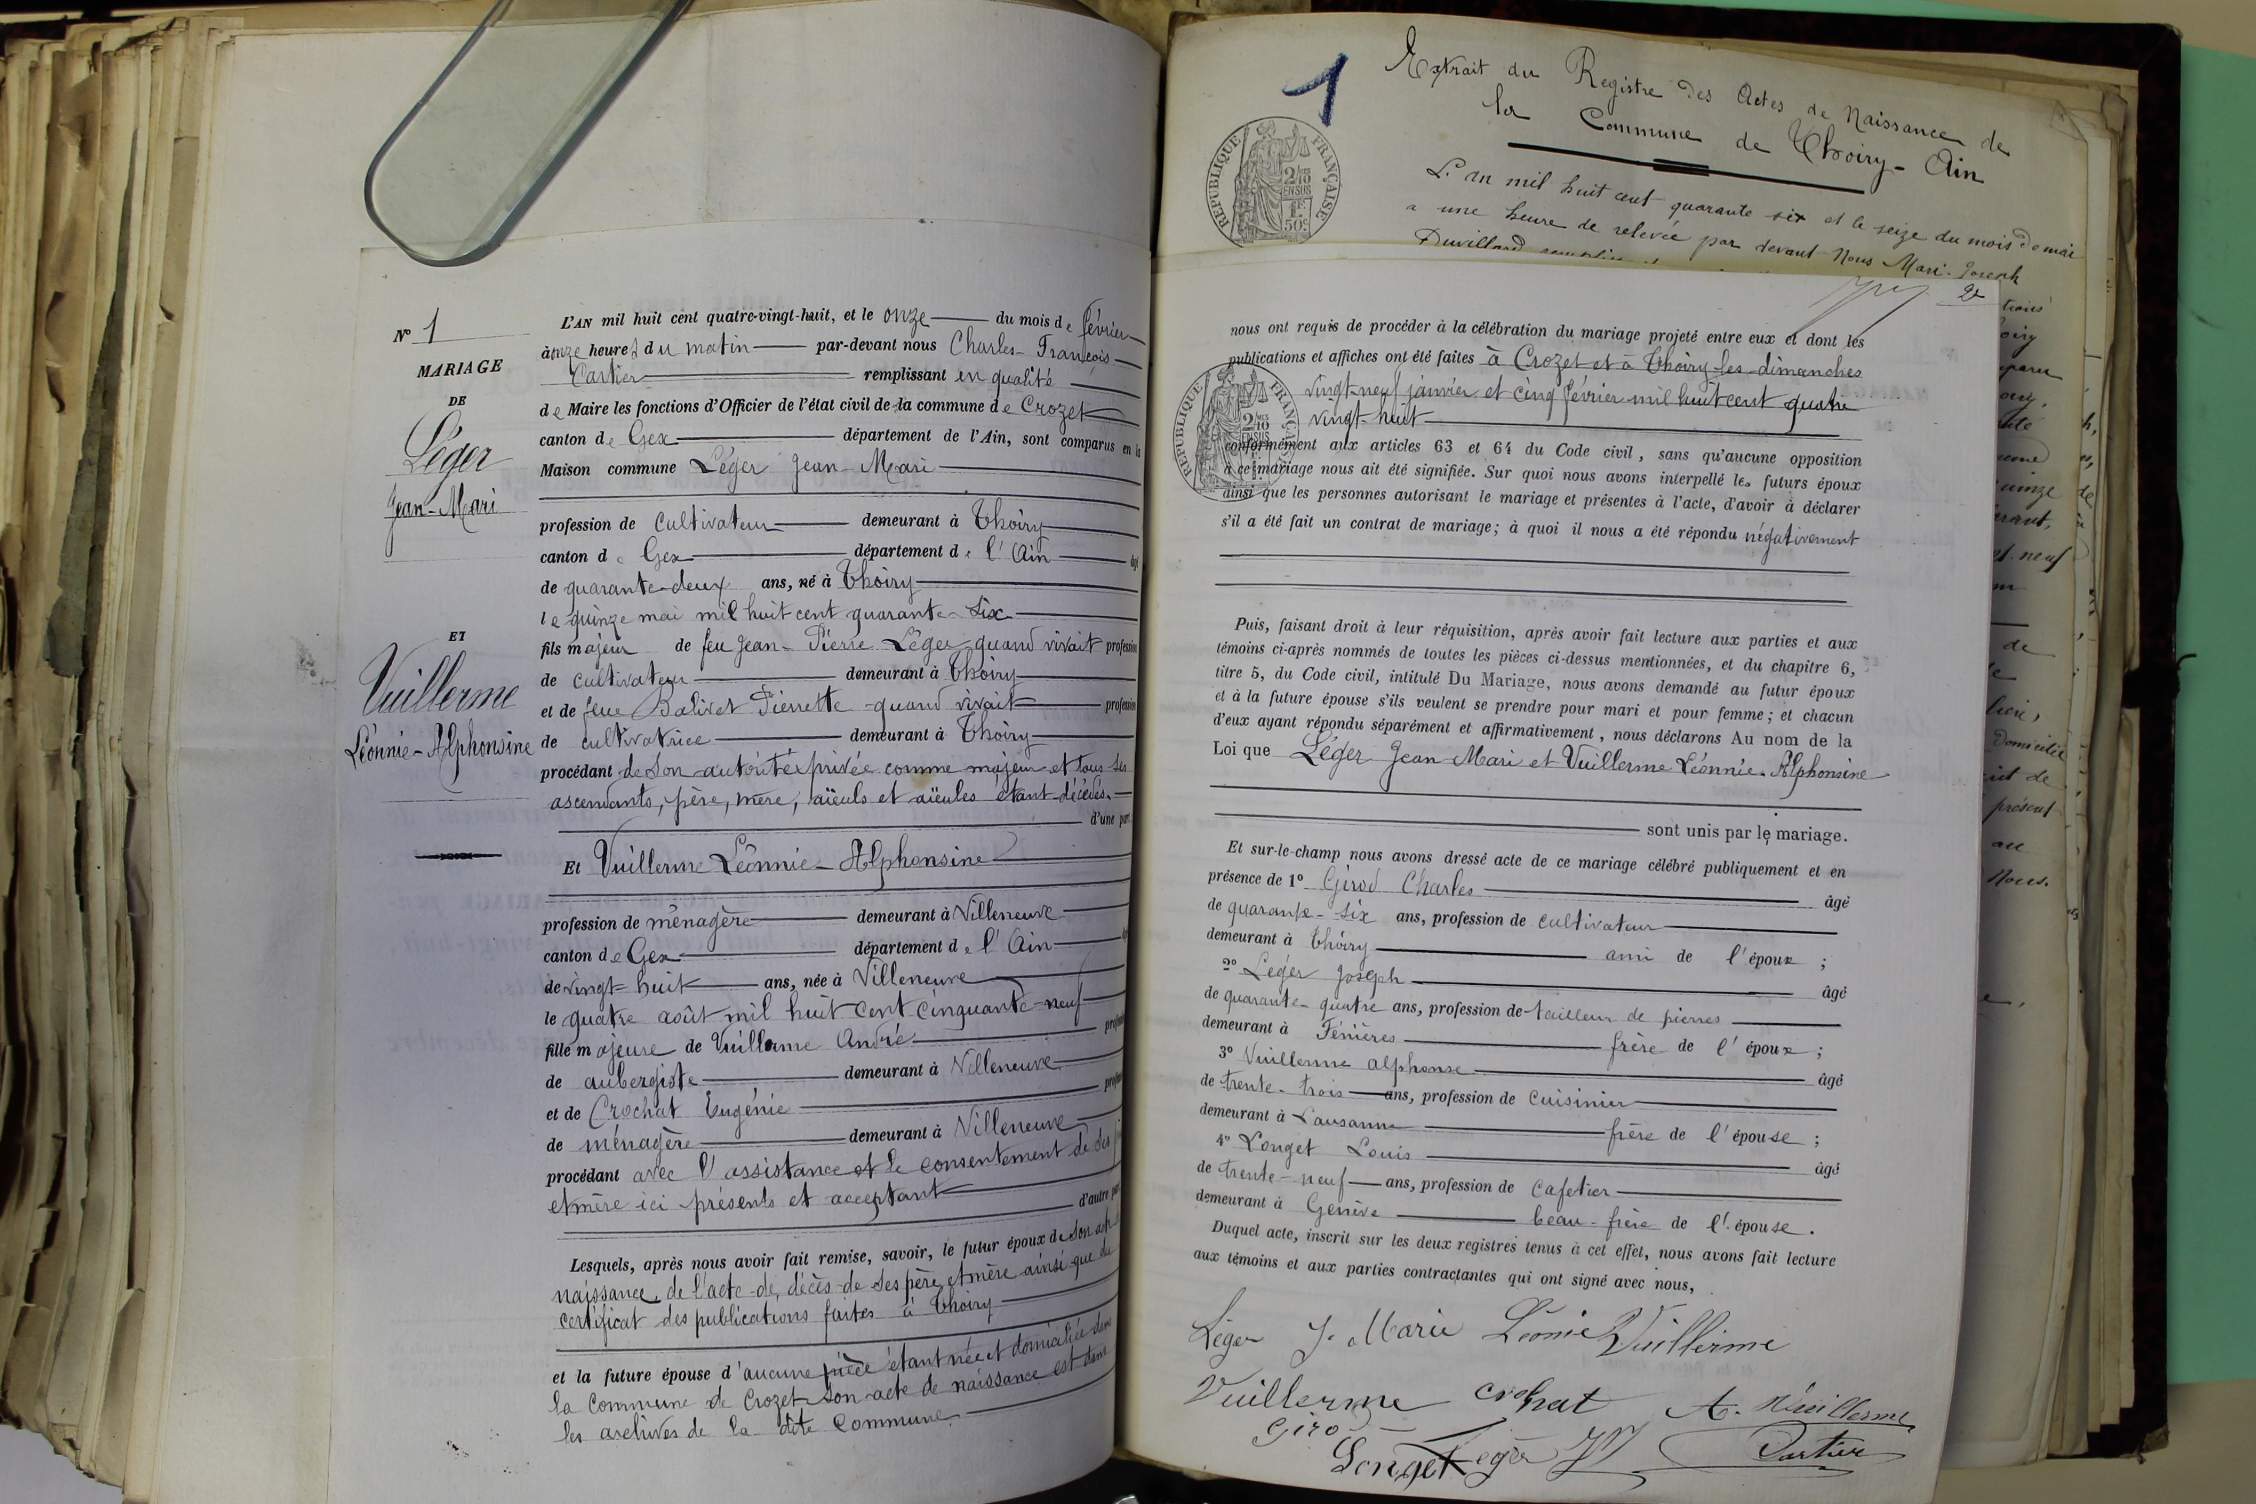 N° 1
MARIAGE
DE
Léger
Jean-Mari
ET
Vuillerme
Léonnie-Alphonsine
L'AN mil huit cent quatre-vingt-huit, et le onze du mois de février
à onze heures du matin par-devant nous Charles-François
Cartier remplissant en qualité
de Maire les fonctions d'Officier de l'état civil de la commune de Crozet
canton de Gex département de l'Ain, sont comparus en la
Maison commune Léger Jean-Mari
profession de cultivateur demeurant à Thoiry
canton de Gex département de l'Ain âgé
de quarante-deux ans, né à Thoiry
le quinze mai mil huit cent quarante-six
fils majeur de feu Jean-Pierre Léger quand vivait profession
de cultivateur demeurant à Thoiry
et de feue Balivet Pierrette quand vivait profession
de cultivatrice demeurant à Thoiry
procédant de son autorité privée comme majeur et tous ses
ascendants, père, mère, aïeuls et aïeules étant décédés.
d'une part.
Et Vuillerme Léonnie-Alphonsine
profession de ménagère demeurant à Villeneuve
canton de Gex département de l'Ain
de vingt-huit ans, née à Villeneuve
le quatre août mil huit cent cinquante-neuf
fille majeure de Vuillerme André
de aubergiste demeurant à Villeneuve
et de Crochat Eugénie
de ménagère demeurant à Villeneuve
procédant avec l'assistance et le consentement de ses
et mère ici présents et acceptant
d'autre part
Lesquels, après nous avoir fait remise, savoir, le futur époux de son
naissance, de l'acte de décès de ses père et mère ainsi que du
certificat des publications faites à Thoiry
et la future épouse d'aucune pièce étant née et domiciliée dans
la commune de Crozet son acte de naissance est dans
les archives de la dite commune.
1
Extrait du Registre des Actes de Naissance de
la Commune de Thoiry-Ain
RÉPUBLIQUE FRANÇAISE
2/10
EN SUS
1F
50c
L'an mil huit cent quarante six et le seize du mois de mai
a une heure de relevée par devant Nous Mari-Joseph
Duvillard
2
nous ont requis de procéder à la célébration du mariage projeté entre eux et dont les
publications et affiches ont été faites à Crozet et à Thoiry les dimanches
vingt-neuf janvier et cinq février mil huit cent quatre
vingt-huit
RÉPUBLIQUE FRANÇAISE
conformément aux articles 63 et 64 du Code civil, sans qu'aucune opposition
à ce mariage nous ait été signifiée. Sur quoi nous avons interpellé les futurs époux
ainsi que les personnes autorisant le mariage et présentes à l'acte, d'avoir à déclarer
s'il a été fait un contrat de mariage; à quoi il nous a été répondu négativement
Puis, faisant droit à leur réquisition, après avoir fait lecture aux parties et aux
témoins ci-après nommés de toutes les pièces ci-dessus mentionnées, et du chapitre 6,
titre 5, du Code civil, intitulé Du Mariage, nous avons demandé au futur époux
et à la future épouse s'ils veulent se prendre pour mari et pour femme; et chacun
d'eux ayant répondu séparément et affirmativement, nous déclarons Au nom de la
Loi que Léger Jean Mari et Vuillerme Léonnie-Alphonsine
sont unis par le mariage.
Et sur-le-champ nous avons dressé acte de ce mariage célébré publiquement et en
présence de 1° Girod Charles âgé
de quarante-six ans, profession de cultivateur
demeurant à Thoiry ami de l'époux ;
2° Léger Joseph âgé
de quarante-quatre ans, profession de tailleur de pierres
demeurant à Fénières frère de l'époux ;
3° Vuillerme alphonse âgé
de trente-trois ans, profession de cuisinier
demeurant à Lausanne frère de l'épouse ;
4° Longet Louis âgé
de trente-neuf ans, profession de cafetier
demeurant à Genève beau-frère de l'épouse.
Duquel acte, inscrit sur les deux registres tenus à cet effet, nous avons fait lecture
aux témoins et aux parties contractantes qui ont signé avec nous,
Léger J. Marie Léonie Vuillerme
Vuillerme crohat A. Vuillerme
Girod
Longet Leger Cartier